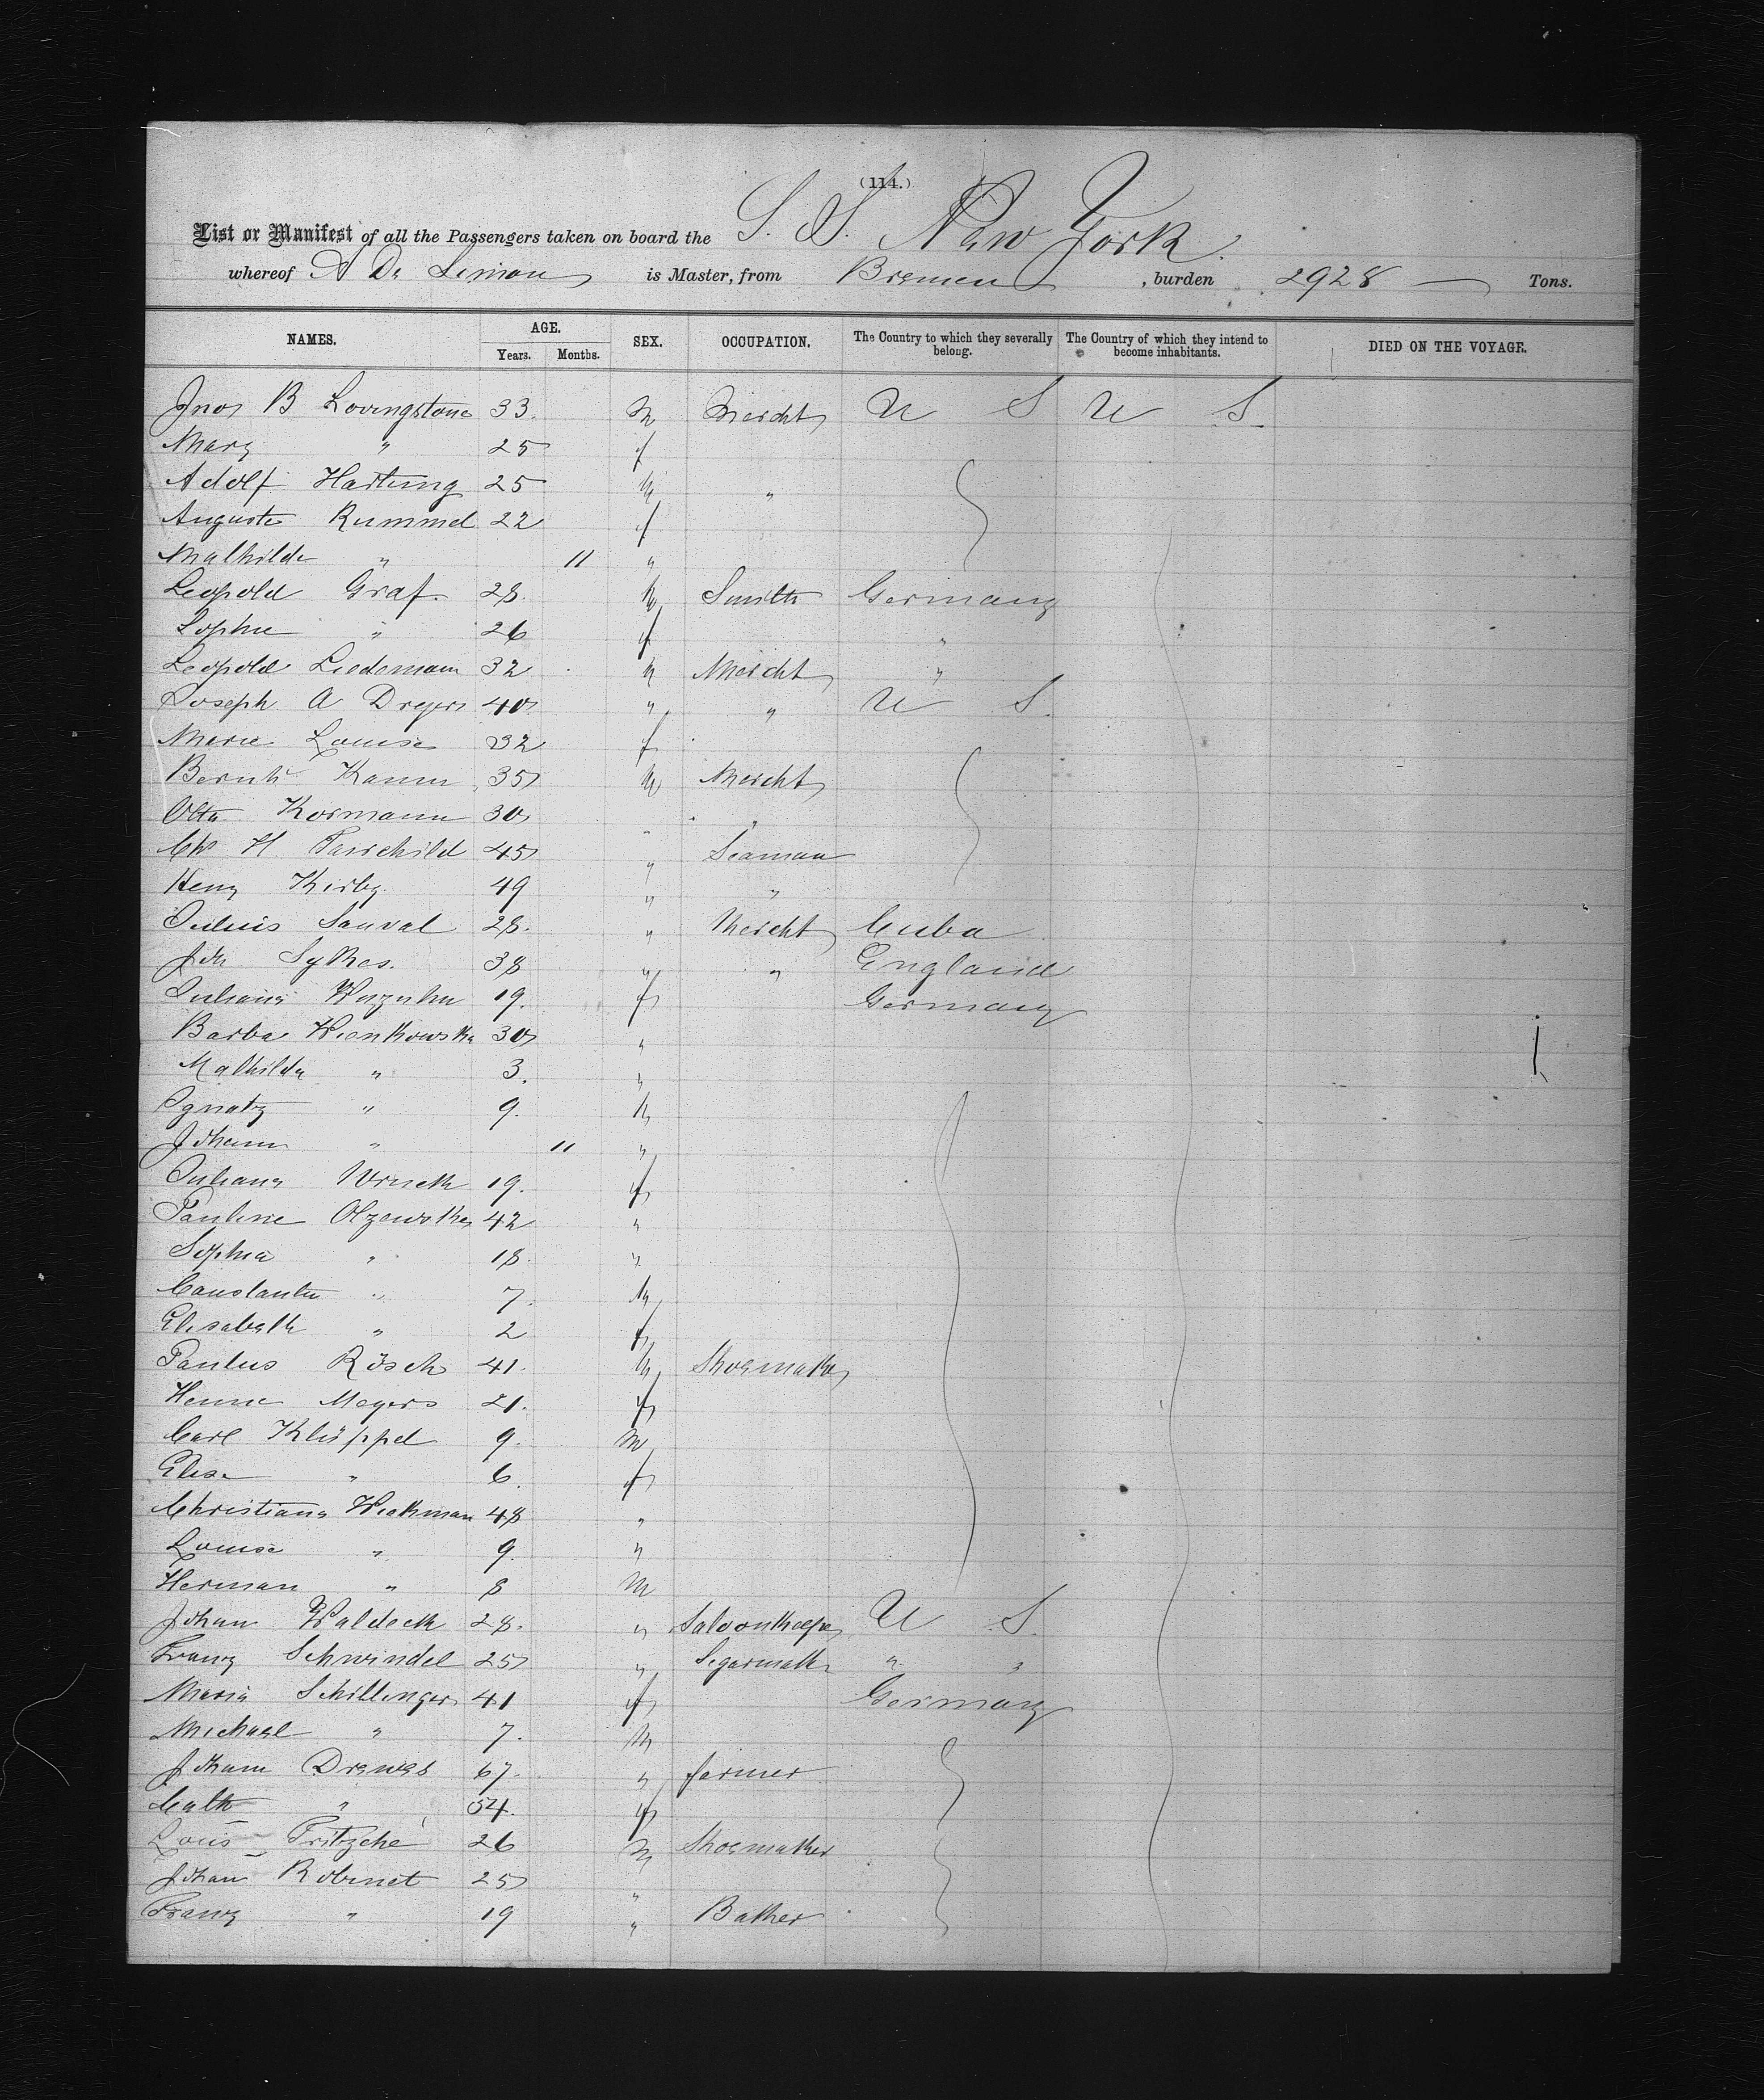 (114.)
List or Manifest of all the Passengers taken on board the S. S. New York.
whereof A De Limon is Master, from Bremen, burden 2928 — Tons.
NAMES. AGE. SEX. OCCUPATION. The Country to which they severally belong. The Country of which they intend to become inhabitants. DIED ON THE VOYAGE.
Years. Months.
Jno B Lovingstone 33. m Mercht U S U S
Mary " 25 f
Adolf Hartung 25 m "
Auguste Rummel 22 f
Mathilde " 11 "
Leopold Graf. 28. m Smith Germany
Sophie " 26 f "
Leopold Liedemann 32 m Mercht "
Joseph A Dreyer 40 " " U S.
Marie Louise 32 f
Bernh Kamm 35 m Mercht
Otto Kormann 30 " "
Chs H Fairchild 45 " Seaman
Heny Kirby. 49 " "
Julius Sauval 28. " Mercht Cuba
Joh Sykes. 38 " " England
Juliana 19. f Germany
Barba Wienkowska 30 "
Mathilda " 3. "
Ignatz " 9. m
Johann " 11 "
Juliana Wruck 19. f
Pauline Olzewska 42 "
Sophia " 18. "
Constantin " 7. m
Elisabeth " 2 f
Paulus Rösch 41. m Shoemaker
Henne Meyers 21. f
Carl Klüppel 9. m
Elise " 6. f
Christiana Wiekman 48 "
Louise " 9. "
Herman " 8 m
Johan Waldeck 28. " Saloonkeeper U S.
Franz Schwindel 25 " Segarmaker " "
Maria Schillinger 41 f Germany
Michael " 7. m
Johann Drewes 67. " farmer
Cath " 54. f
Louis Fritzche 26 m Shoemaker
Johan Robinet 25 "
Franz " 19 " Baker